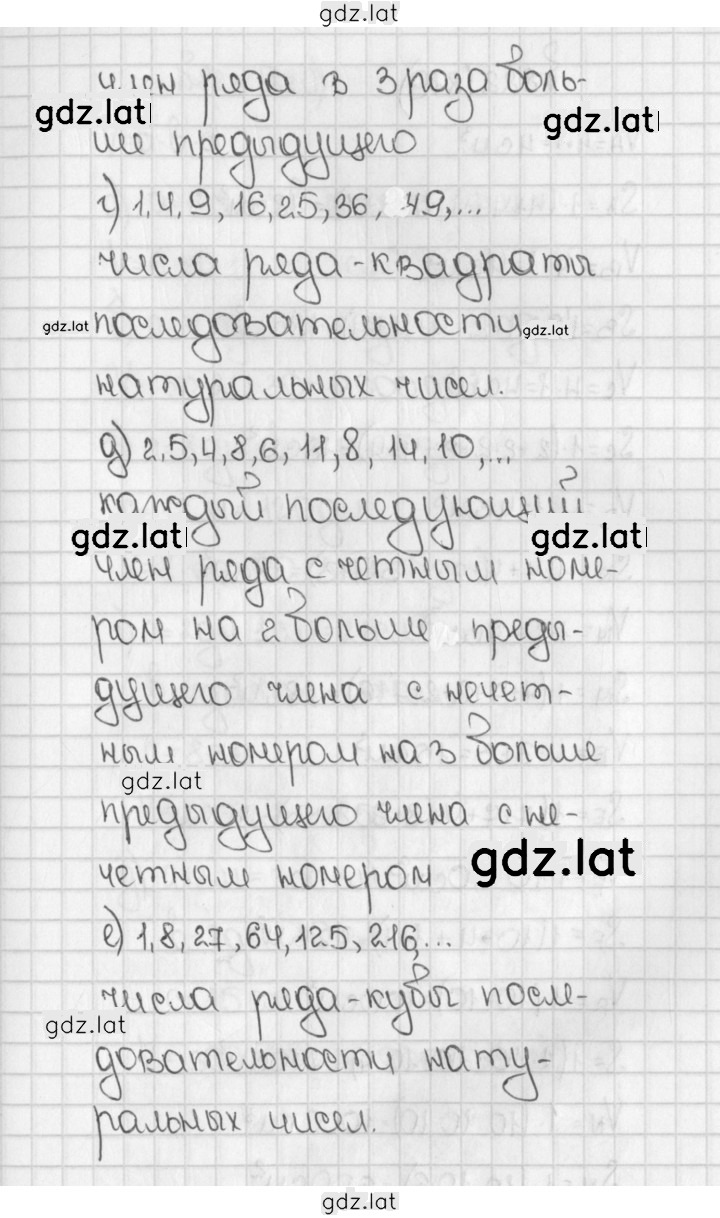 gdz.lat
член ряда в 3 раза боль-
gdz.lat gdz.lat
ше предыдущего
г) 1,4,9,16,25,36, 49,...
числа ряда-квадраты
gdz.lat последовательности gdz.lat
натуральных чисел.
д) 2,5,4,8,6,11,8,14,10,...
каждый последующий
gdz.lat gdz.lat
член ряда с четным номе-
ром на 2 больше преды-
дущего члена с нечет-
ным номером на 3 больше
gdz.lat
предыдущего члена с не-
четным номером
gdz.lat
е) 1,8,27,64,125,216,...
числа ряда-кубы после-
gdz.lat
довательности нату-
ральных чисел.
gdz.lat